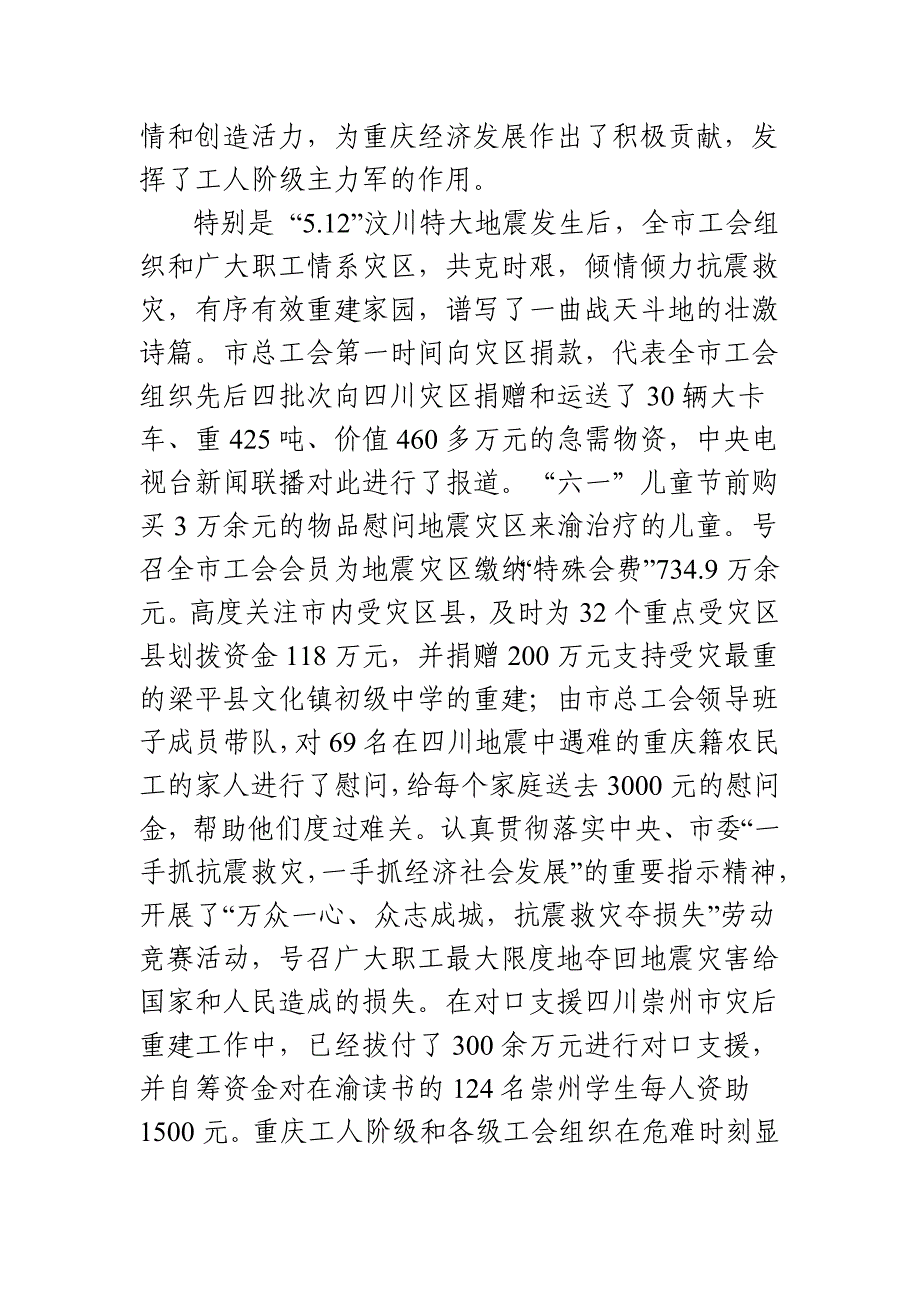 情和创造活力，为重庆经济发展作出了积极贡献，发
挥了工人阶级主力军的作用。
特别是 “5.12”汶川特大地震发生后，全市工会组
织和广大职工情系灾区，共克时艰，倾情倾力抗震救
灾，有序有效重建家园，谱写了一曲战天斗地的壮激
诗篇。市总工会第一时间向灾区捐款，代表全市工会
组织先后四批次向四川灾区捐赠和运送了 30 辆大卡
车、重 425 吨、价值 460 多万元的急需物资，中央电
视台新闻联播对此进行了报道。“六一”儿童节前购
买 3 万余元的物品慰问地震灾区来渝治疗的儿童。号
召全市工会会员为地震灾区缴纳“特殊会费”734.9 万余
元。高度关注市内受灾区县，及时为 32 个重点受灾区
县划拨资金 118 万元，并捐赠 200 万元支持受灾最重
的梁平县文化镇初级中学的重建；由市总工会领导班
子成员带队，对 69 名在四川地震中遇难的重庆籍农民
工的家人进行了慰问，给每个家庭送去 3000 元的慰问
金，帮助他们度过难关。认真贯彻落实中央、市委“一
手抓抗震救灾，一手抓经济社会发展”的重要指示精神，
开展了“万众一心、众志成城，抗震救灾夺损失”劳动
竞赛活动，号召广大职工最大限度地夺回地震灾害给
国家和人民造成的损失。在对口支援四川崇州市灾后
重建工作中，已经拔付了 300 余万元进行对口支援，
并自筹资金对在渝读书的 124 名崇州学生每人资助
1500 元。重庆工人阶级和各级工会组织在危难时刻显